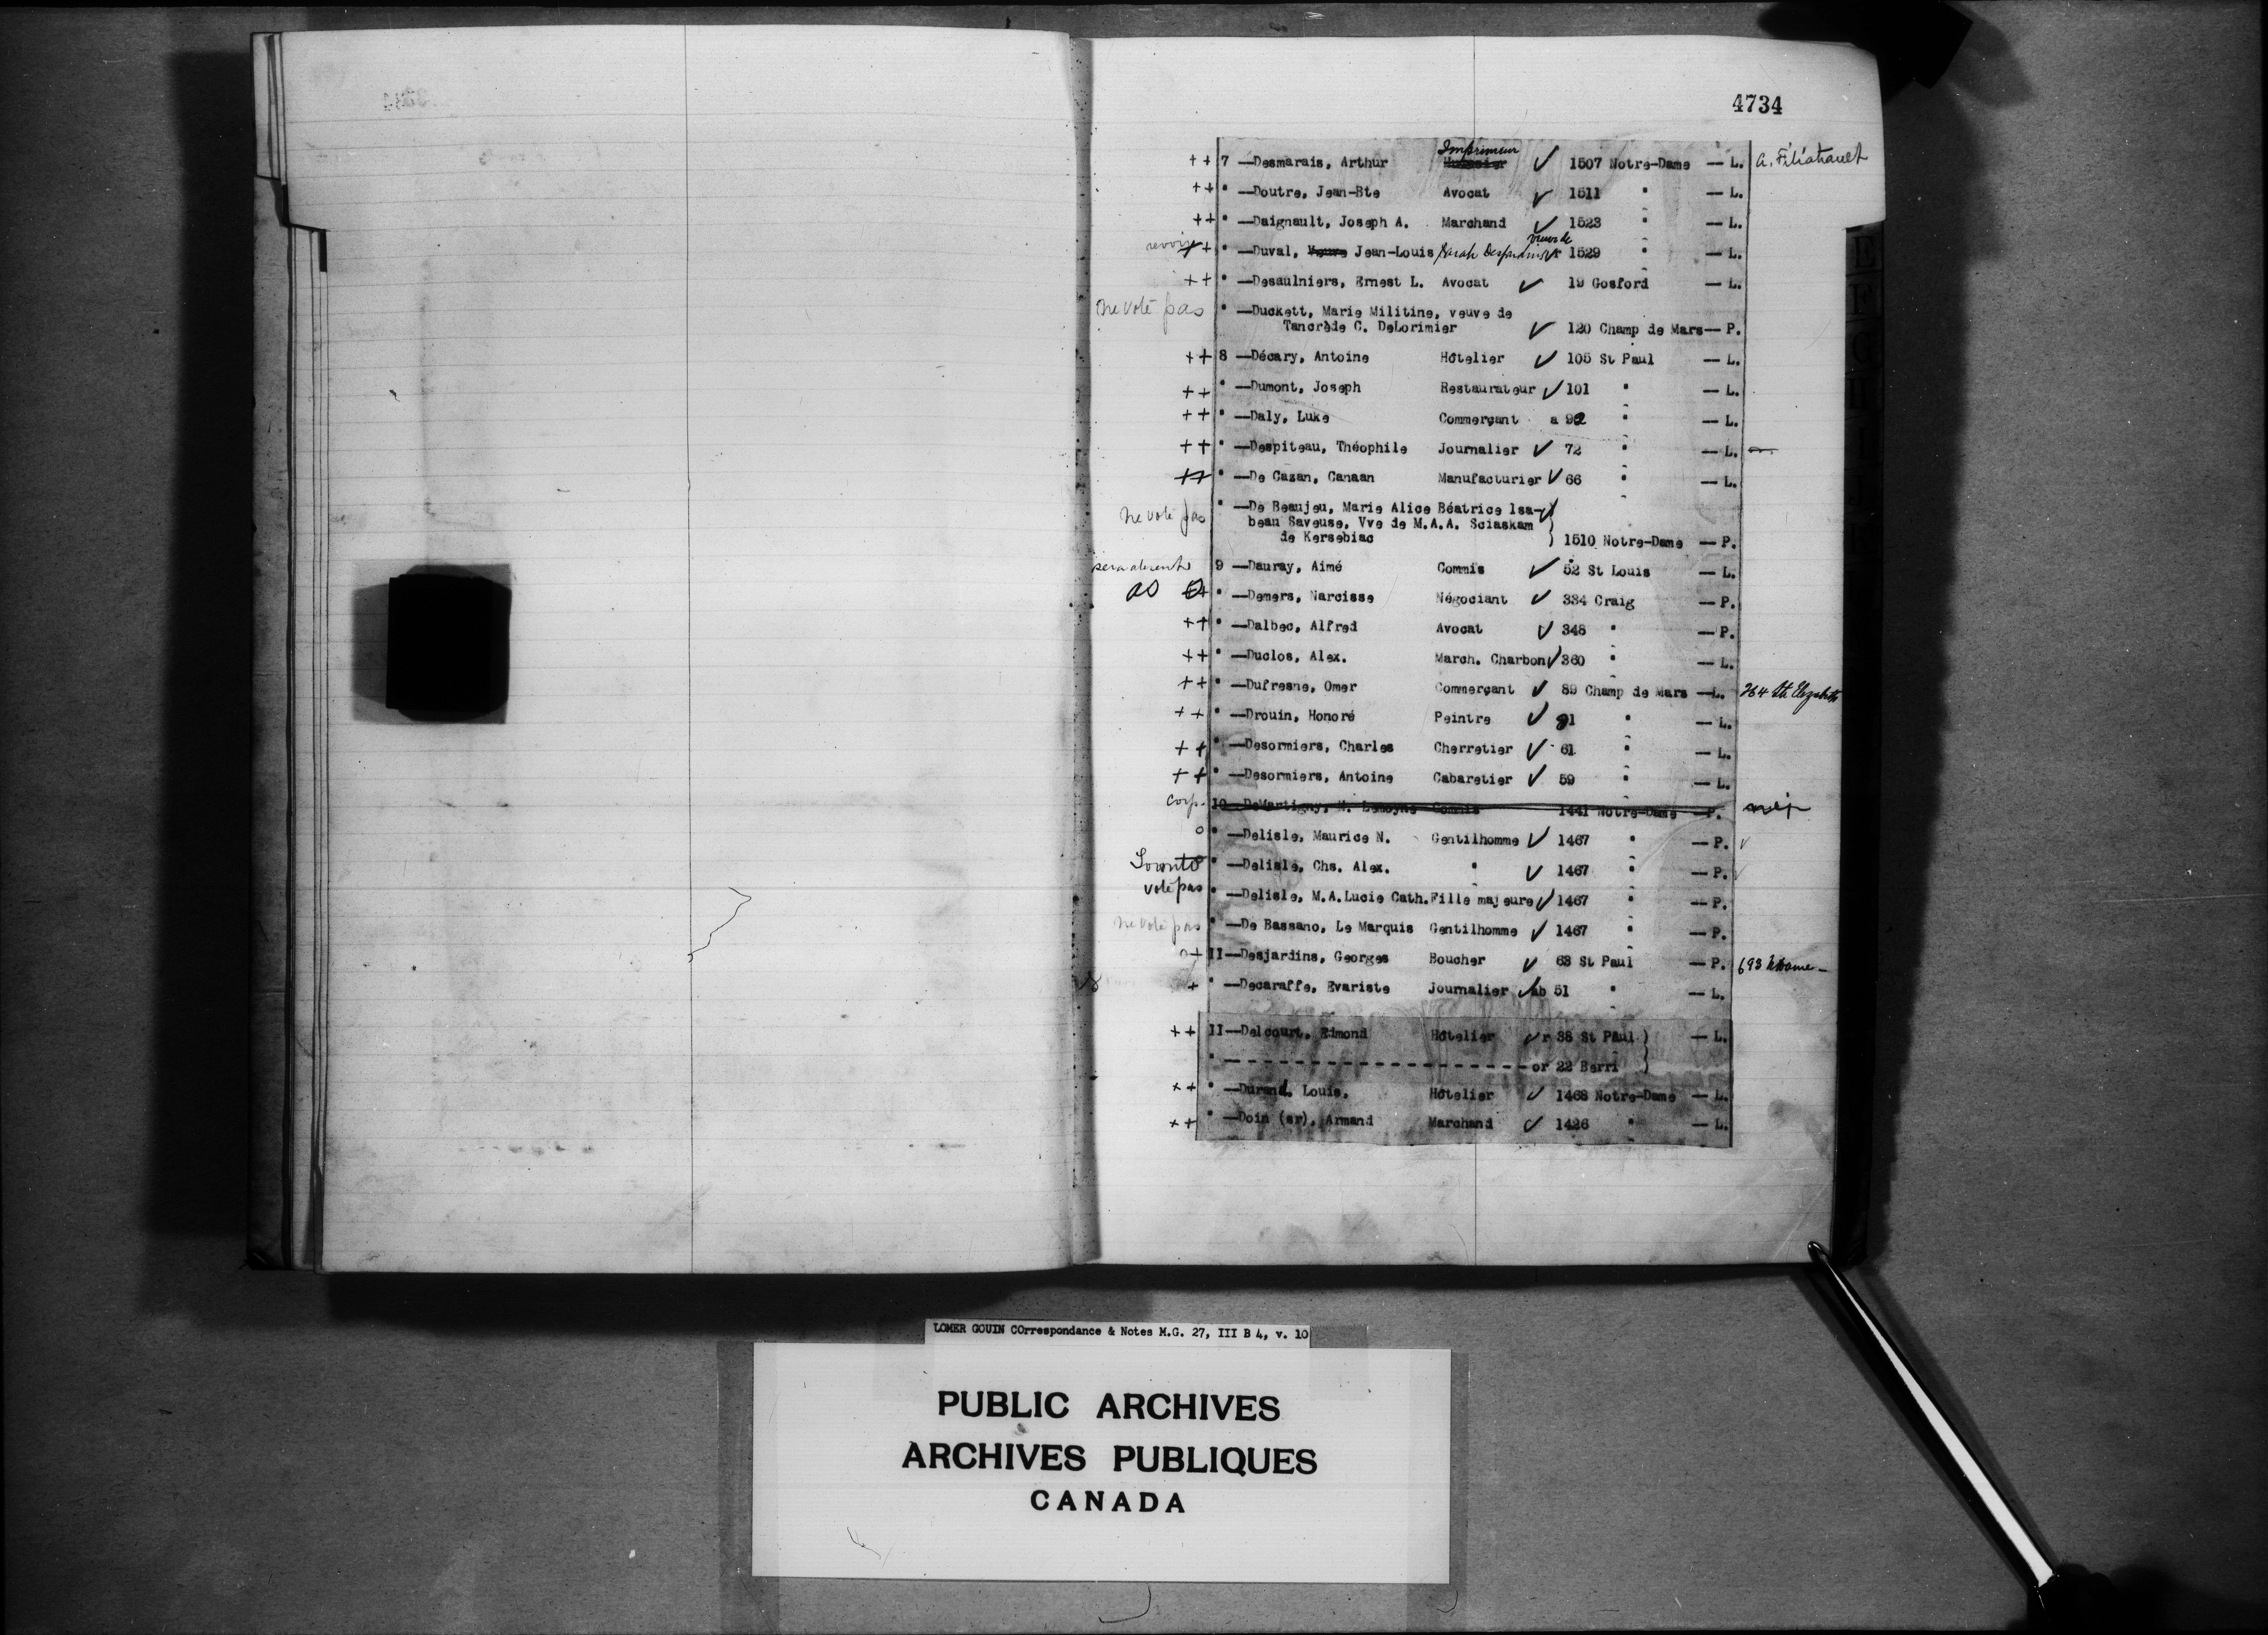 4734
++ 7 —Desmarais, Arthur Imprimeur ✓ 1507 Notre-Dame — L. A. Filiatrault
++ " —Doutre, Jean-Bte Avocat ✓ 1511 " — L.
++ " —Daignault, Joseph A. Marchand ✓ 1523 " — L.
revoir ++ " —Duval, Veuve Jean-Louis Sarah Desjardins veuve de 1529 " — L.
++ " —Desaulniers, Ernest L. Avocat ✓ 19 Gosford — L.
ne vote pas " —Duckett, Marie Militine, veuve de
Tancrède C. DeLorimier ✓ 120 Champ de Mars — P.
++ 8 —Décary, Antoine Hôtelier ✓ 105 St Paul — L.
++ " —Dumont, Joseph Restaurateur ✓ 101 " — L.
++ " —Daly, Luke Commerçant a 92 " — L.
++ " —Despiteau, Théophile Journalier ✓ 72 " — L.
++ " —De Cazan, Canaan Manufacturier ✓ 66 " — L.
ne vote pas " —De Beaujeu, Marie Alice Béatrice Isa-
beau Saveuse, Vve de M.A.A. Sciaskam
de Kersebiac } 1510 Notre-Dame — P.
sera absent 9 —Dauray, Aimé Commis ✓ 52 St Louis — L.
" —Demers, Narcisse Négociant ✓ 334 Craig — P.
++ " —Dalbec, Alfred Avocat ✓ 348 " — P.
++ " —Duclos, Alex. March. Charbon ✓ 360 " — L.
++ " —Dufresne, Omer Commerçant ✓ 89 Champ de Mars — L. 264 Ste Elizabeth
++ " —Drouin, Honoré Peintre ✓ 91 " — L.
++ " —Desormiers, Charles Cherretier ✓ 61 " — L.
++ " —Desormiers, Antoine Cabaretier ✓ 59 " — L.
corp. 10—DeMartigny, M. Lemoyne Commis 1441 Notre-Dame — P.
o " —Delisle, Maurice N. Gentilhomme ✓ 1467 " — P. ✓
Toronto " —Delisle, Chs. Alex. " ✓ 1467 " — P. ✓
vote pas " —Delisle, M.A.Lucie Cath. Fille majeure ✓ 1467 " — P.
ne vote pas " —De Bassano, Le Marquis Gentilhomme ✓ 1467 " — P.
o+ 11—Desjardins, Georges Boucher ✓ 68 St Paul — P. 693
+ " —Decaraffe, Evariste Journalier ✓ab 51 " — L.
++ 11—Delcourt, Edmond Hôtelier ✓ r 38 St Paul ) — L.
" — - - - - - - - - - - - - - - - - - - - - or 22 Berri )
++ " —Durand, Louis, Hôtelier ✓ 1468 Notre-Dame — L.
++ " —Doin (sr), Armand Marchand ✓ 1426 " — L.
E
F
G
H
I
J
LOMER GOUIN COrrespondance & Notes M.G. 27, III B 4, v. 10
PUBLIC ARCHIVES
ARCHIVES PUBLIQUES
CANADA